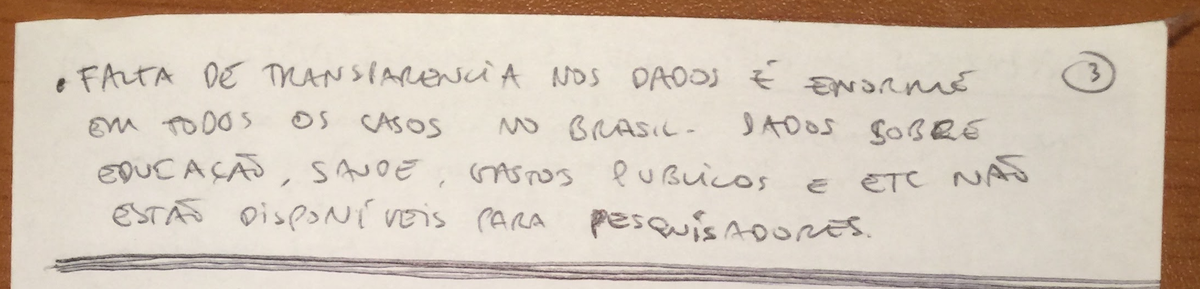 • FALTA DE TRANSPARENCIA NOS DADOS É ENORME ③
EM TODOS OS CASOS NO BRASIL. DADOS SOBRE
EDUCAÇÃO, SAUDE, GASTOS PUBLICOS E ETC NÃO
ESTÃO DISPONÍVEIS PARA PESQUISADORES.